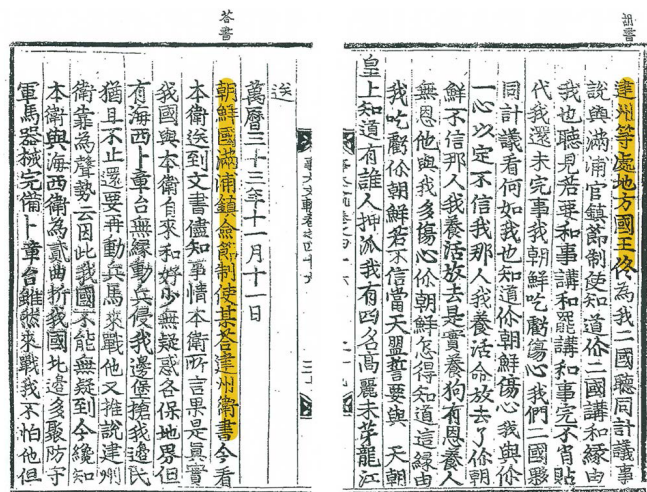 胡書
建州等處地方國王佟為我二國聽同計議事
說與滿浦官鎮節制使知道你二國講和緣由
我也聽見若要和事講和罷講和事完不肯貼
代我還未完事我朝鮮吃虧傷心我們二國夥
同計議看何如我也知道你朝鮮傷心我與你
一心以定不信我那人我養活命放去了你朝
鮮不信那人我養活放去是實養狗有恩養人
無恩他與我多傷心你朝鮮怎得知道這緣由
我吃虧你朝鮮若不信當天盟誓要與 天朝
皇上知道有誰人押派我有四名高麗未芽龍江
答書
送
萬曆三十三年十一月十一日
朝鮮國滿浦鎮僉節制使某答建州衛書今看
本衛送到文書儘知事情本衛所言果是真實
我國與本衛自來和好少無疑惑各保地界但
有海西卜章台無緣動兵侵我邊堡搶我邊民
猶且不止還要再動兵馬來戰他又推說建州
衛靠為聲勢云因此我國不能無疑到今纔知
本衛與海西衛為貳曲折我國北邊多聚防守
軍馬器械完備卜章台雖然來戰我不怕他但